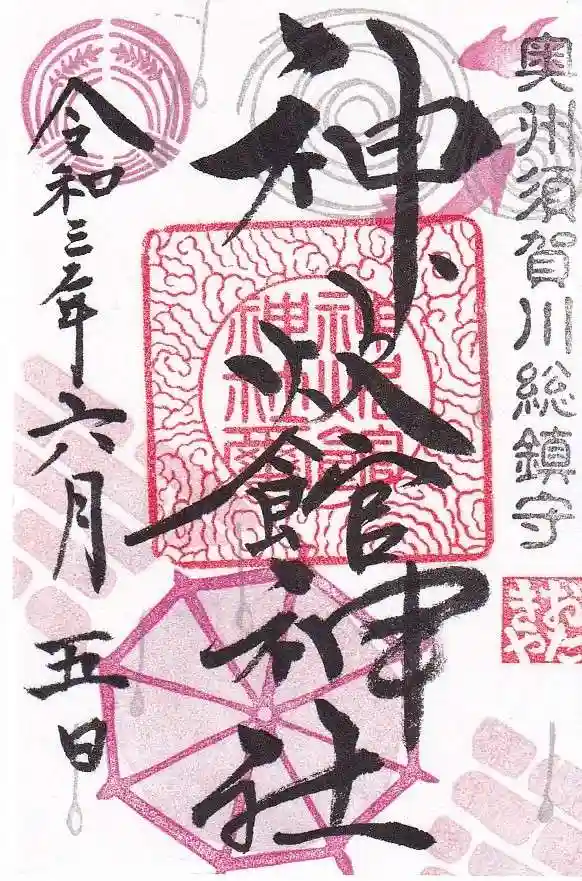 奥州須賀川総鎮守
神炊館神社
令和三年六月五日
おたきや